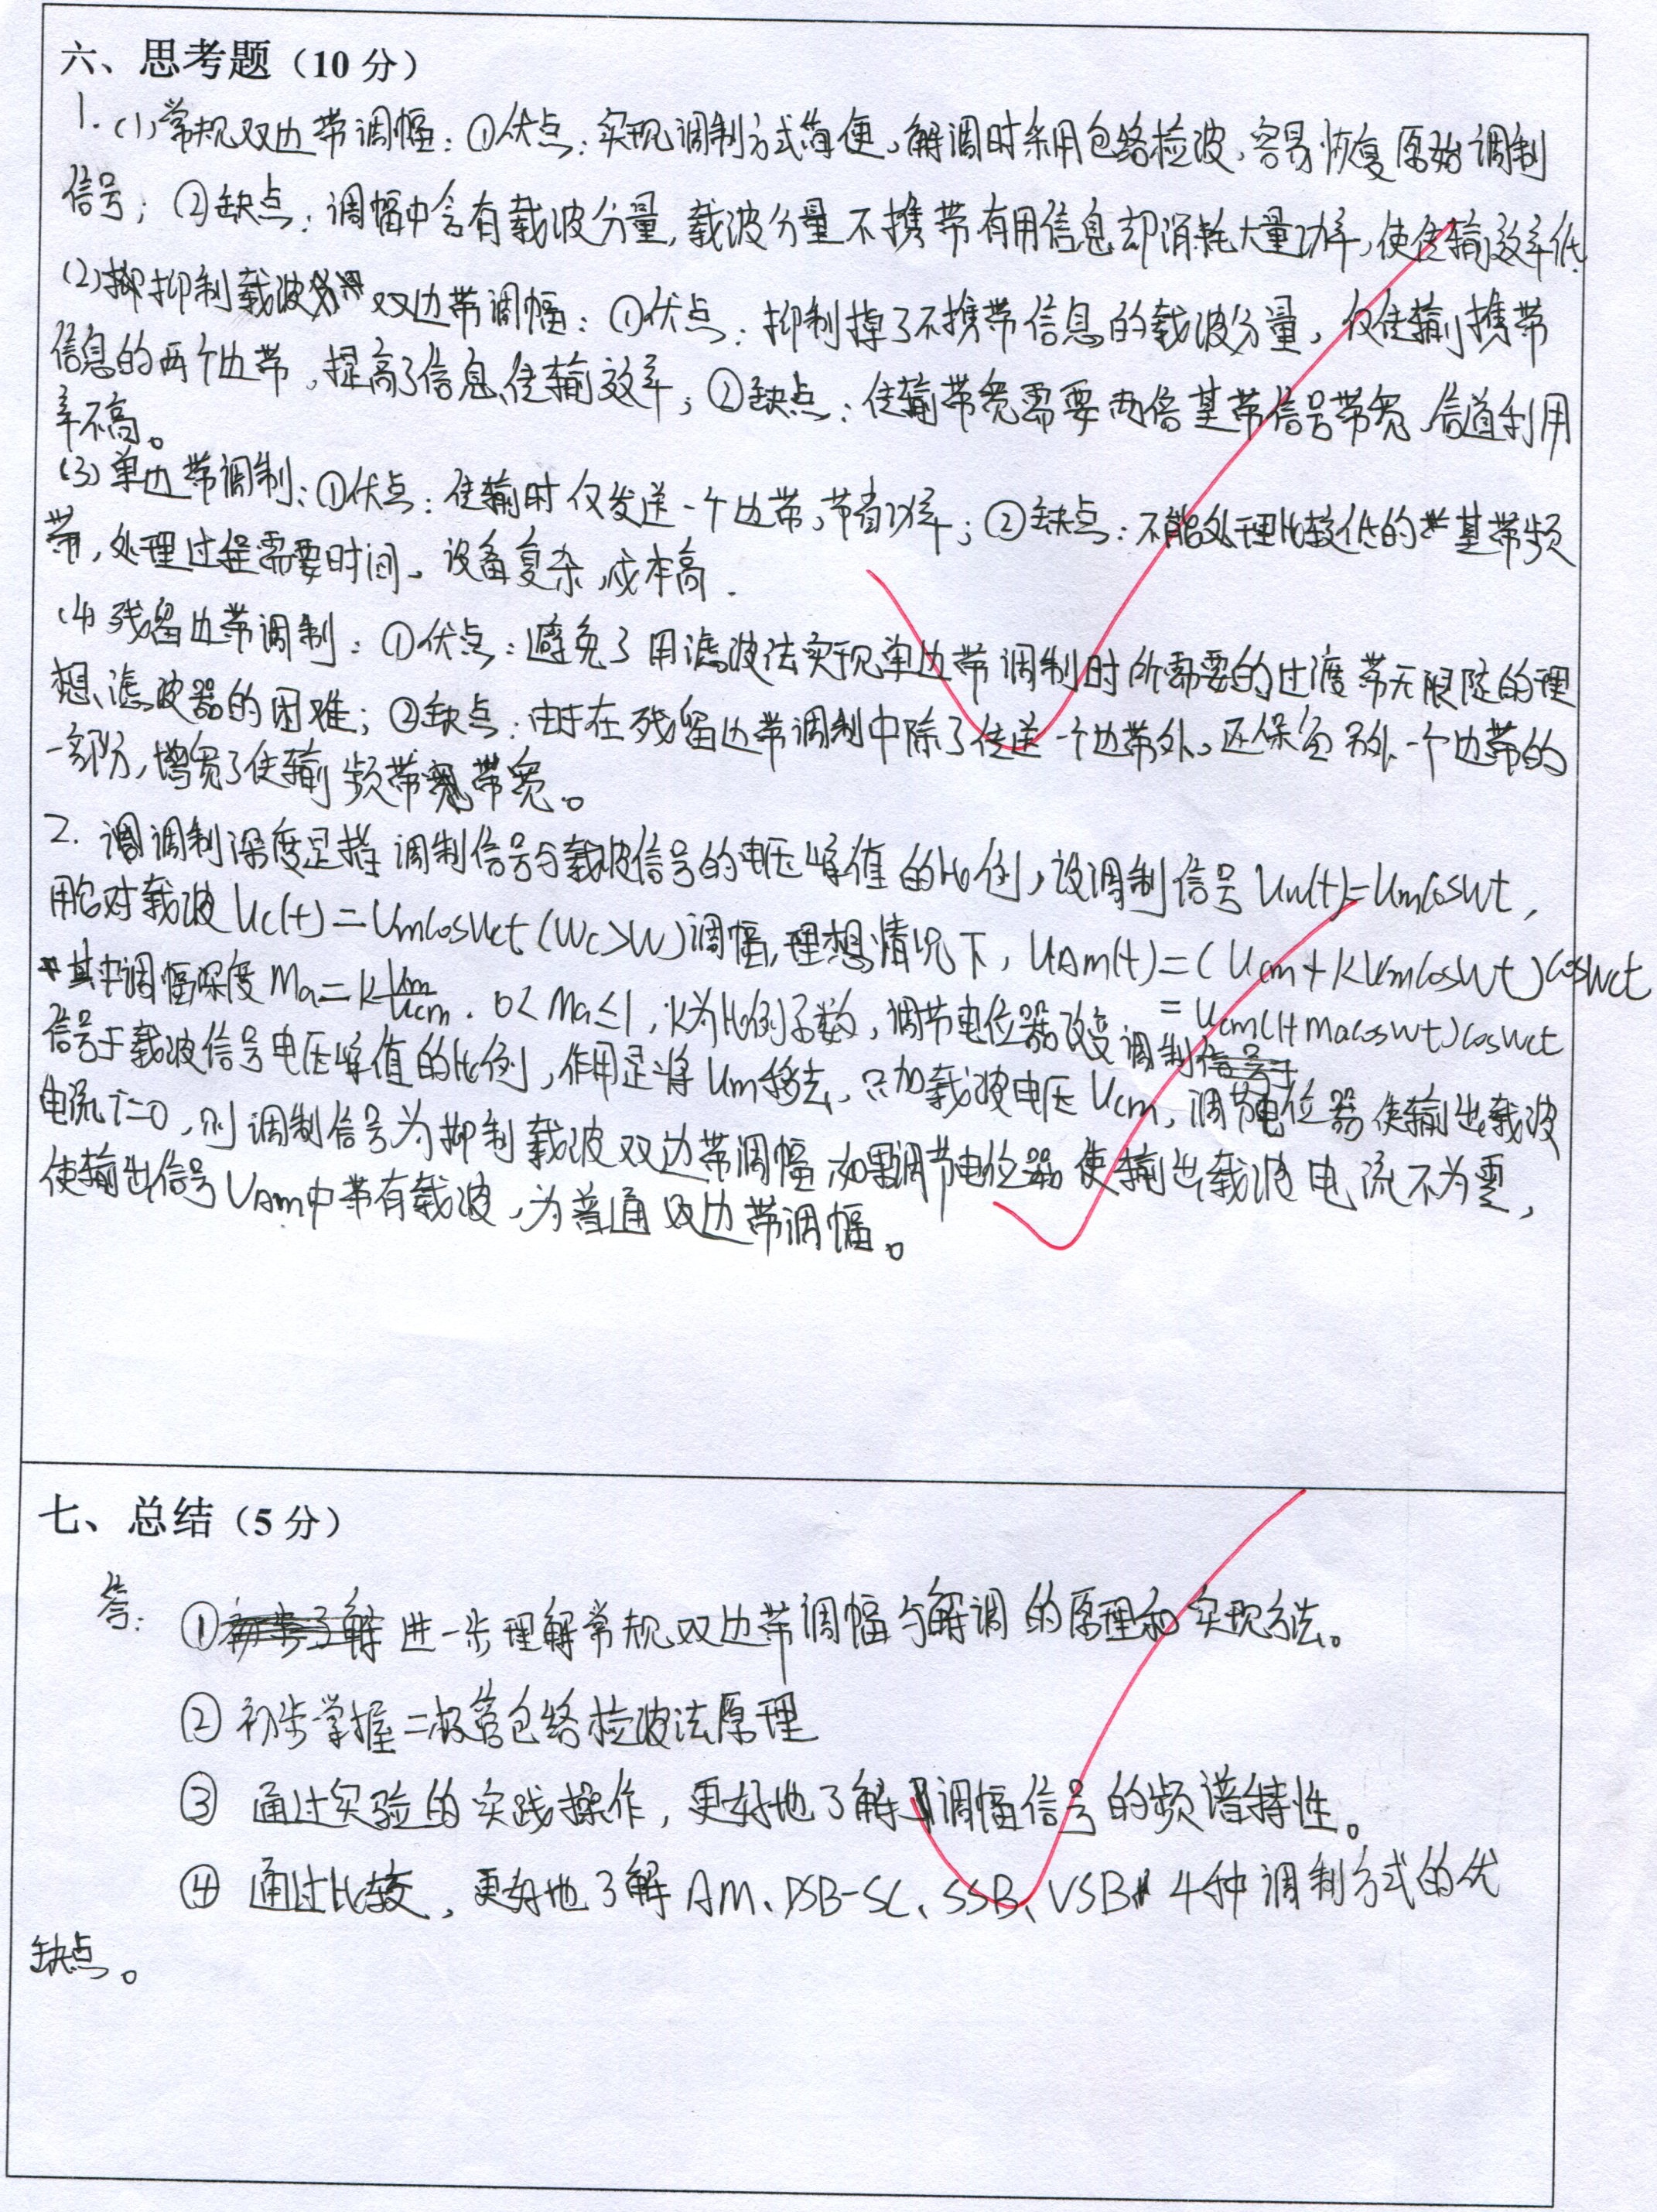 六、思考题（10 分）
1. (1)常规双边带调幅：①优点：实现调制方式简便，解调时采用包络检波，容易恢复原始调制
信号；②缺点：调幅中含有载波分量，载波分量不携带有用信息却消耗大量功率，使传输效率低.
(2)抑制载波双边带调幅：①优点：抑制掉了不携带信息的载波分量，仅传输携带
信息的两个边带，提高了信息传输效率；②缺点：传输带宽需要两倍基带信号带宽，信道利用
率不高。
(3)单边带调制：①优点：传输时仅发送一个边带，节省功率；②缺点：不能处理比较低的基带频
带，处理过程需要时间，设备复杂，成本高.
(4)残留边带调制：①优点：避免了用滤波法实现单边带调制时所需要的过渡带无限陡的理
想滤波器的困难；②缺点：由于在残留边带调制中除了传送一个边带外，还保留另外一个边带的
一部分，增宽了传输频带带宽。
2. 调制深度是指调制信号与载波信号的电压峰值的比例，设调制信号 Um(t)=Umcoswt，
用它对载波 Uc(t)=Umcoswct (wc>w)调幅，理想情况下，UAm(t)=(Ucm+kUmcoswt)coswct
=Ucm(1+macoswt)coswct
其中调幅深度 Ma=k Um/Ucm. 0<Ma≤1，k为比例系数，调节电位器改变调制
信号于载波信号电压峰值的比例，作用是将Um移去，只加载波电压Ucm，调节电位器使输出载波
电流i=0，则调制信号为抑制载波双边带调幅，如果调节电位器使输出载波电流不为零，
使输出信号UAm中带有载波，为普通双边带调幅。
七、总结（5 分）
答：①进一步理解常规双边带调幅与解调的原理和实现方法。
②初步掌握二极管包络检波法原理
③ 通过实验的实践操作，更好地了解调幅信号的频谱特性。
④ 通过比较，更好地了解 AM、DSB-SC、SSB、VSB 4种调制方式的优
缺点。